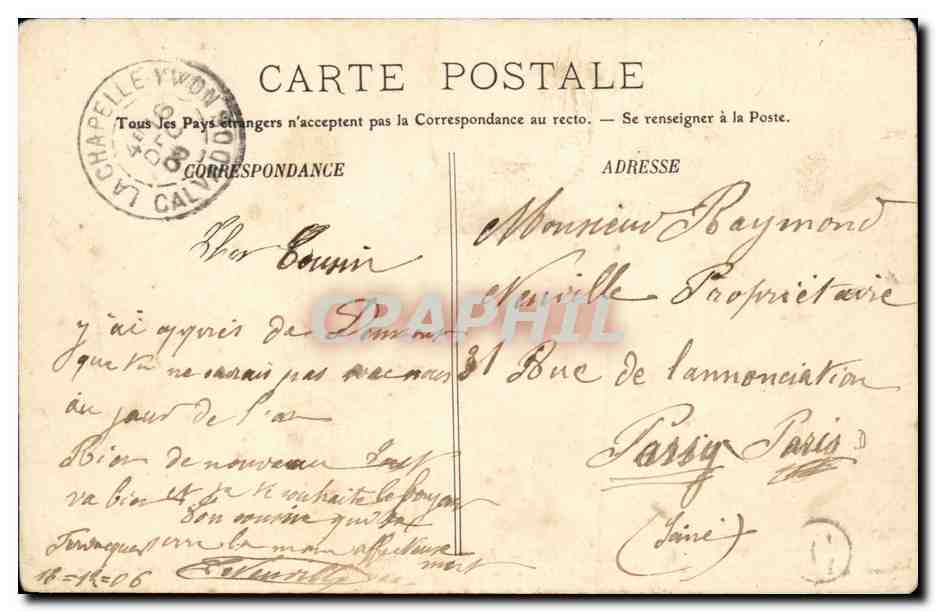 CARTE POSTALE
Tous les Pays étrangers n'acceptent pas la Correspondance au recto. — Se renseigner à la Poste.
LA CHAPELLE-YVON
CALVADOS
CORRESPONDANCE
Cher Cousin
j'ai appris de
que tu ne serais pas avec nous
au jour de l'an
Rien de nouveau Tout
va bien et je te souhaite le bonjour
Ton cousin qui te
serre la main affectueuse
ment
18=12=06
ADRESSE
Monsieur Raymond
Neuville Propriétaire
31 Rue de l'annonciation
Passy Paris
(Seine)
CPAPHIL